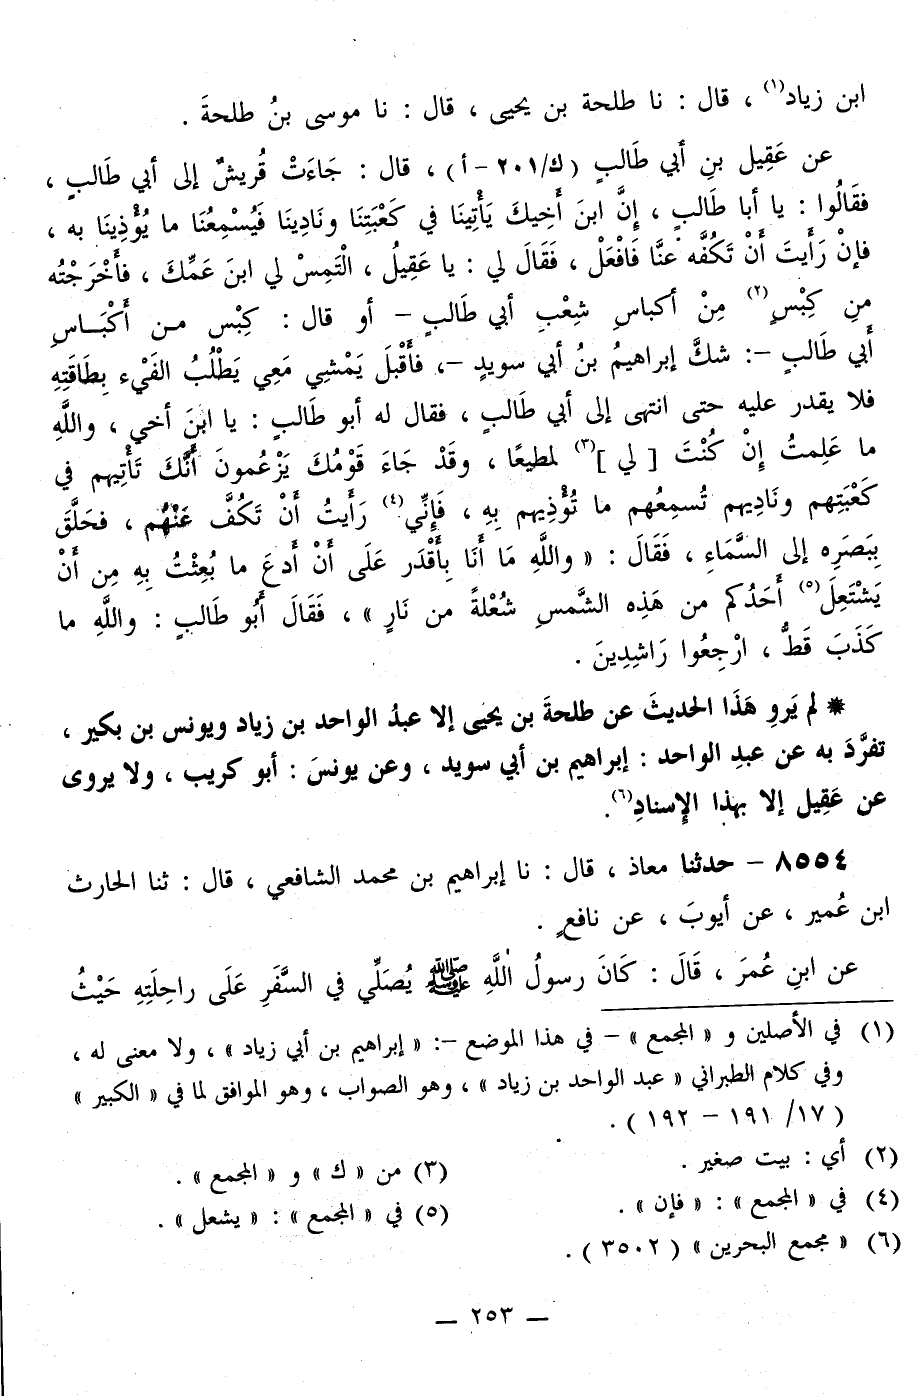 ابن زياد(١) ، قال : نا طلحة بن يحيى ، قال : نا موسى بنُ طلحةَ .
عن عَقِيل بنِ أبي طَالبٍ ( ك/٢٠١ - أ ) ، قال : جَاءَتْ قُريشٌ إلى أبي طَالبٍ ،
فقَالُوا : يا أبا طَالبٍ ، إنَّ ابنَ أَخِيكَ يَأْتِينَا في كَعْبَتِنَا ونَادِينَا فَيُسْمِعُنَا ما يُؤْذِينَا به ،
فإنْ رَأَيتَ أَنْ تَكُفَّه عنَّا فَافْعَلْ ، فَقَالَ لي : يا عَقِيلُ ، الْتَمِسْ لي ابنَ عَمِّكَ ، فأَخْرَجْتُه
مِن كِبْسٍ(٢) مِنْ أكباسِ شِعْبِ أبي طَالبٍ – أو قال : كِبْس مـن أَكْبَـاسِ
أَبي طَالبٍ –: شكَّ إبراهيمُ بنُ أبي سويدٍ –، فأَقْبَلَ يَمْشِي مَعِي يَطْلُبُ الفَيْء بِطَاقَتِهِ
فلا يقدر عليه حتى انتهى إلى أبي طَالبٍ ، فقال له أبو طَالبٍ : يا ابنَ أخي ، واللَّهِ
ما عَلِمتُ إِنْ كُنْتَ [ لي ](٣) لمطيعًا ، وقَدْ جَاءَ قَوْمُكَ يَزْعُمونَ أَنَّكَ تَأْتِيهم في
كَعْبَتِهم ونَادِيهم تُسمِعُهم ما تُؤْذِيهم بِهِ ، فَإِنِّي(٤) رَأَيتُ أَنْ تَكُفَّ عَنْهُم ، فحَلَّقَ
بِبَصَرِه إلى السَّمَاءِ ، فَقَالَ : « واللَّهِ مَا أَنَا بِأَقْدَر عَلَى أَنْ أَدعَ ما بُعِثْتُ بِهِ مِن أَنْ
يَشْتَعِلَ(٥) أَحَدُكم من هَذِه الشَّمسِ شُعْلةً من نَارٍ » ، فَقَالَ أَبُو طَالبٍ : واللَّهِ ما
كَذَبَ قَطُّ ، ارْجِعُوا رَاشِدِينَ .
* لم يَروِ هَذَا الحديثَ عن طلحةَ بن يحيى إلا عبدُ الواحد بن زياد ويونس بن بكير ،
تفرَّدَ به عن عبدِ الواحد : إبراهيم بن أبي سويد ، وعن يونسَ : أبو كريب ، ولا يروى
عن عَقِيل إلا بهذا الإسنادِ(٦).
٨٥٥٤ – حدثنا معاذ ، قال : نا إبراهيم بن محمد الشافعي ، قال : ثنا الحارث
ابن عُمير ، عن أيوبَ ، عن نافعٍ .
عن ابنِ عُمرَ ، قَالَ : كَانَ رسولُ اللَّهِ ﷺ يُصَلِّي في السَّفَرِ عَلَى راحِلَتِهِ حَيْثُ
(١) في الأصلين و « المجمع » – في هذا الموضع –: « إبراهيم بن أبي زياد » ، ولا معنى له ،
وفي كلام الطبراني « عبد الواحد بن زياد » ، وهو الصواب ، وهو الموافق لما في « الكبير »
( ١٧/ ١٩١ – ١٩٢ ) .
(٢) أي : بيت صغير . (٣) من « ك » و « المجمع » .
(٤) في « المجمع » : « فإن » . (٥) في « المجمع » : « يشعل » .
(٦) « مجمع البحرين » ( ٣٥٠٢ ) .
— ٢٥٣ —